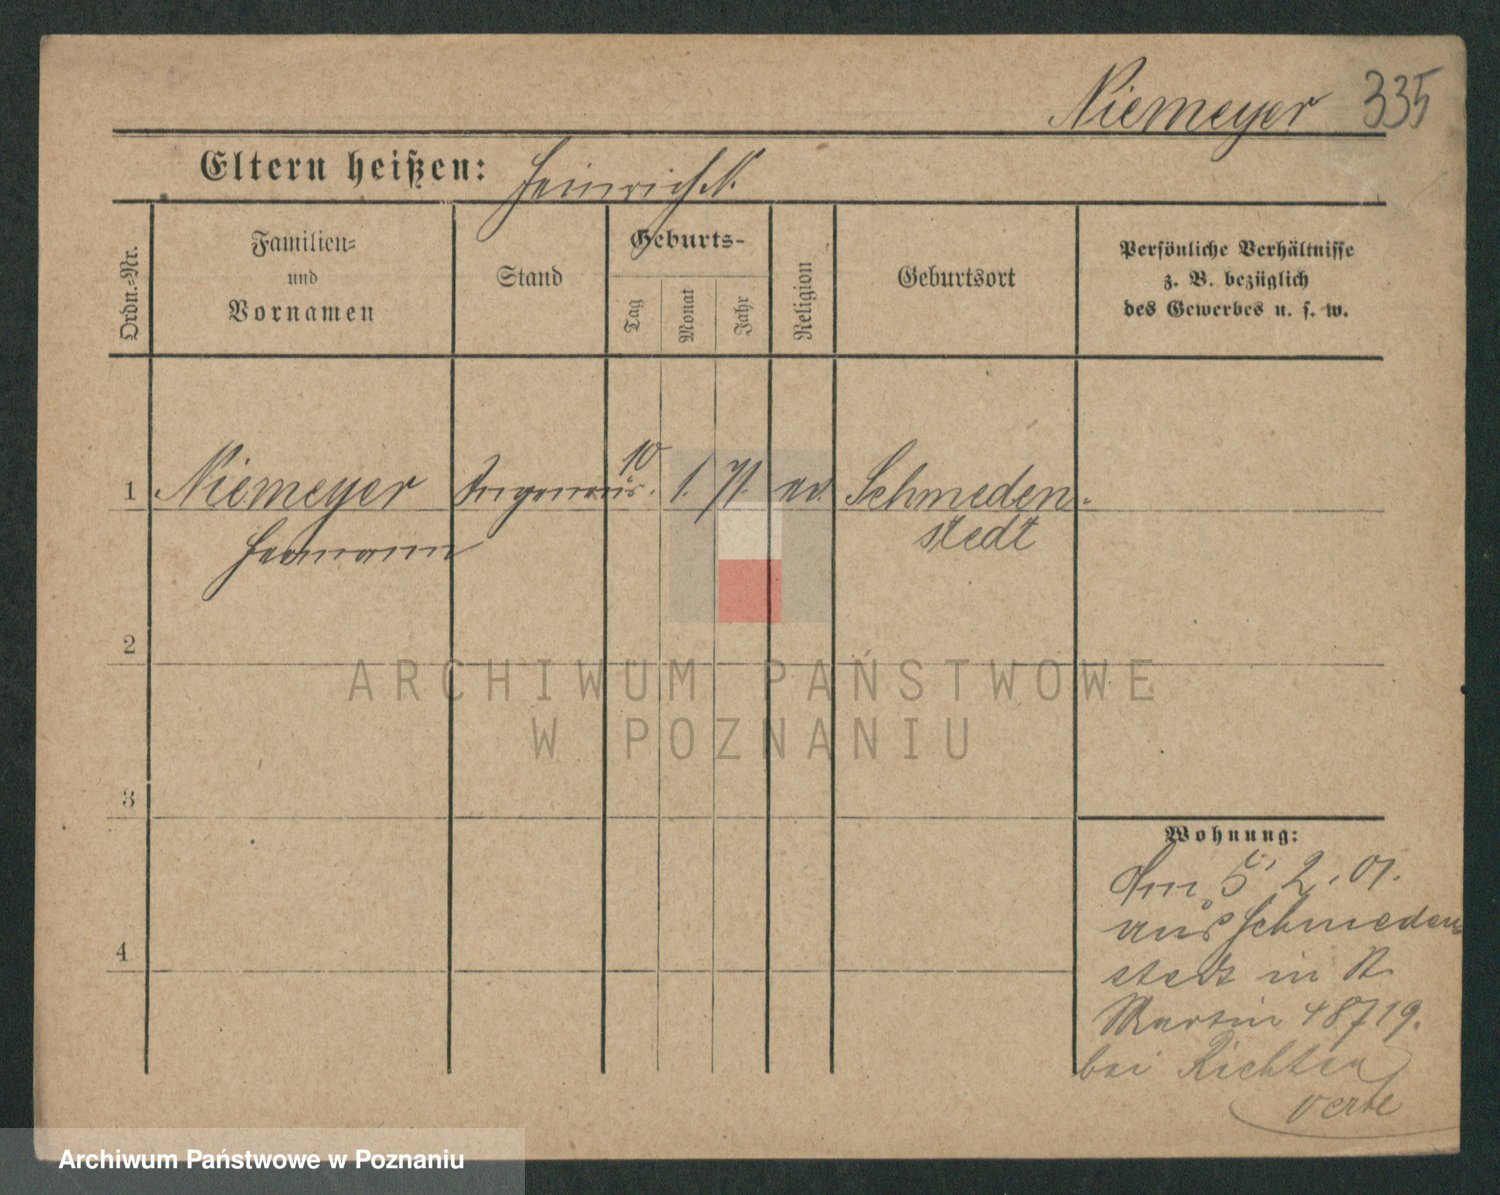 Niemeyer 335
Eltern heißen: Heinrich N.
Ordn.-Nr.
Familien-
und
Vornamen
Stand
Geburts-
Tag
Monat
Jahr
Religion
Geburtsort
Persönliche Verhältnisse
z. B. bezüglich
des Gewerbes u. s. w.
1 Niemeyer 10 1. 71. ev. Schmeden-
Hermann stedt
2
3
4
Wohnung:
Am 5. 2. 01.
aus Schmeden
stedt in St.
Martin
bei Richter
ARCHIWUM PAŃSTWOWE
W POZNANIU
Archiwum Państwowe w Poznaniu